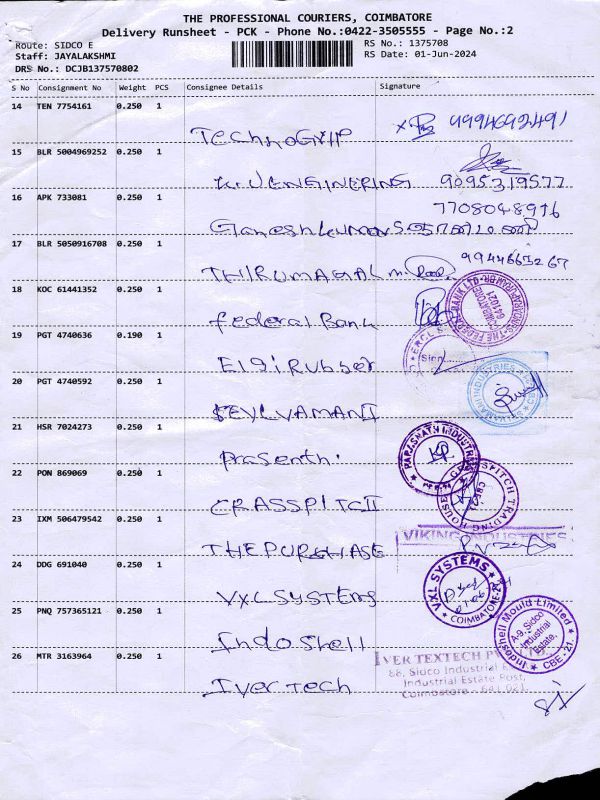 THE PROFESSIONAL COURIERS, COIMBATORE
Delivery Runsheet - PCK - Phone No.:0422-3505555 - Page No.:2
Route: SIDCO E
RS No.: 1375708
Staff: JAYALAKSHMI
RS Date: 01-Jun-2024
DRS No.: DCJB137570802
S No Consignment No Weight PCS Consignee Details Signature
14 TEN 7754161 0.250 1
Technogrip 9994692491
15 BLR 5004969252 0.250 1
K.U ENGINERING 9095319577
16 APK 733081 0.250 1
7708048916
Ganesh kumar
17 BLR 5050916708 0.250 1
THIRUMAGAL m 9944661267
18 KOC 61441352 0.250 1
federal Bank
THE FEDERAL BANK LTD.
COIMBATORE
641021
19 PGT 4740636 0.190 1
Elgi Rubber
20 PGT 4740592 0.250 1
SELVAMANI
SELVAMANI INDUSTRIES
21 HSR 7024273 0.250 1
prasenth.
PARASNATH INDUSTRIES
22 PON 869069 0.250 1
GRASSPITCH
GRASSPITCH TRADING HOUSE
23 IXM 506479542 0.250 1
THE PURCHASE
VIKING INDUSTRIES
24 DDG 691040 0.250 1
VXL SYSTEMS
VXL SYSTEMS
COIMBATORE-21
25 PNQ 757365121 0.250 1
Indo shell
Indoshell Mould Limited
A-9, Sidco
Industrial
Estate,
CBE - 21
26 MTR 3163964 0.250 1
Iver tech
IVER TEXTECH
86, Sidco Industrial
Industrial Estate Post,
Coimbatore - 641 021